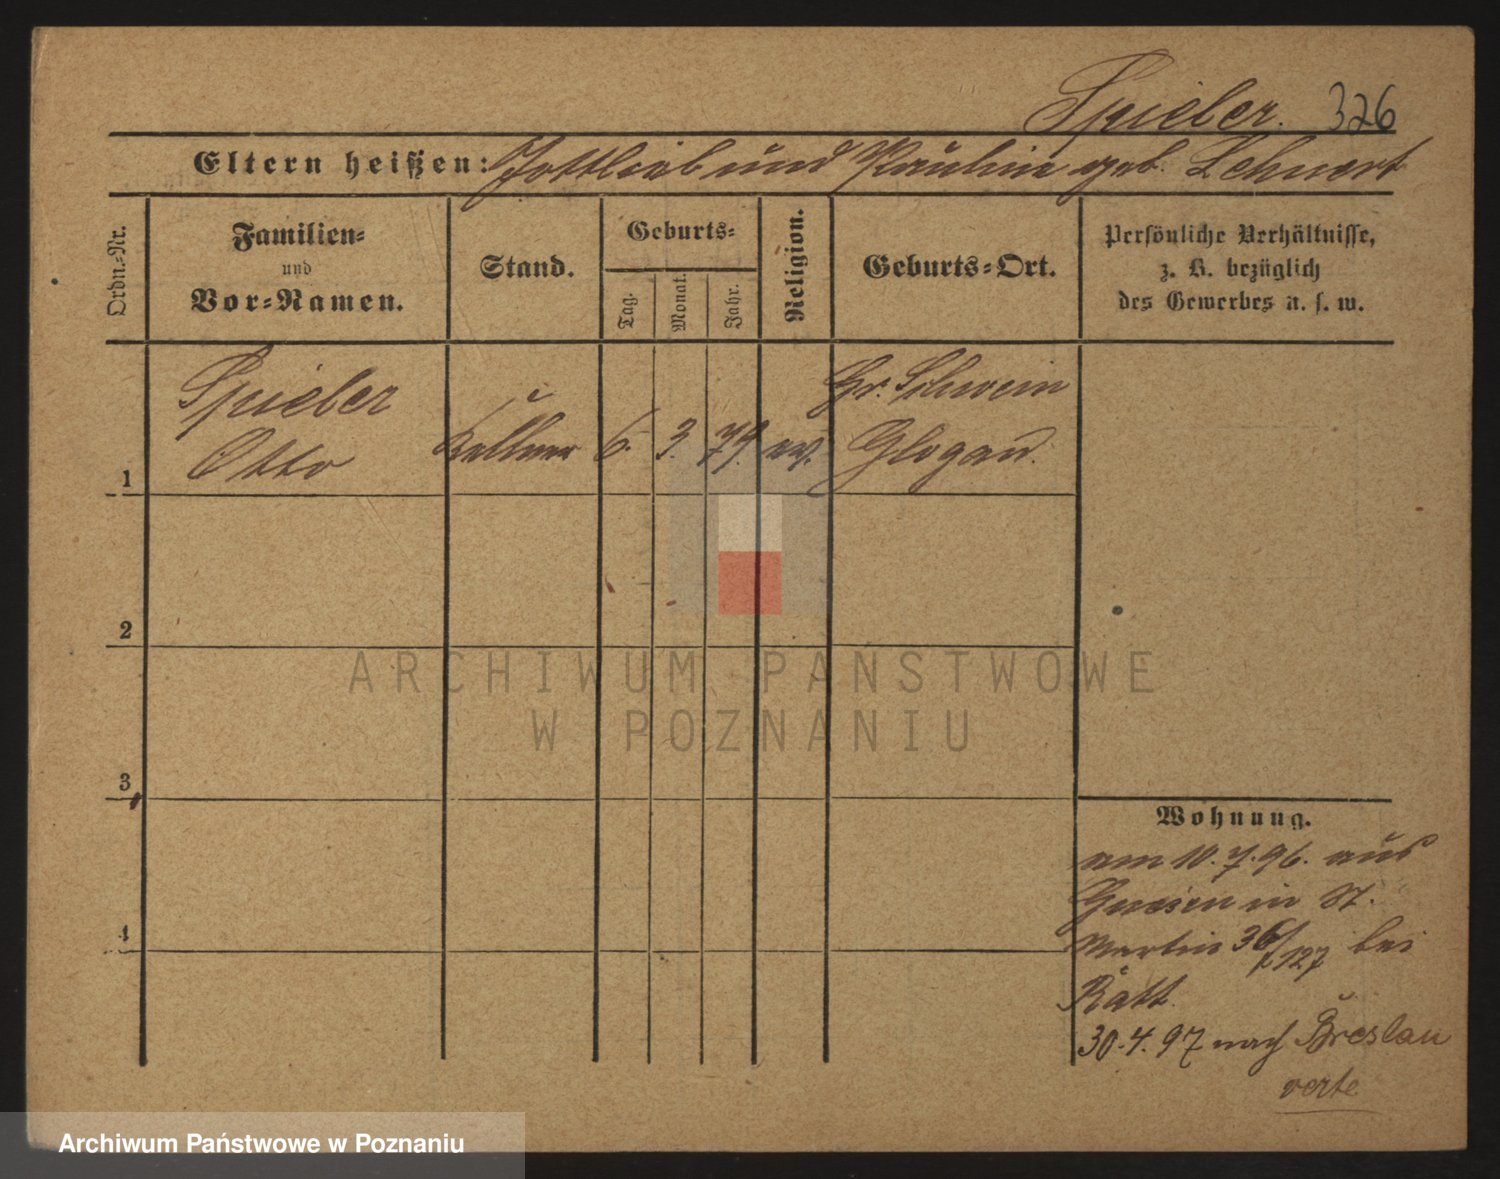 Spieler. 326
Eltern heißen: Gottlieb und Pauline geb. Lehnert
Ordn.-Nr.
Familien-
und
Vor-Namen.
Stand.
Geburts-
Tag.
Monat.
Jahr.
Religion.
Geburts-Ort.
Persönliche Verhältnisse,
z. B. bezüglich
des Gewerbes u. s. w.
1
Spieler
Otto
Kellner
6.
3.
79.
ev.
Gr. Schwein
Glogau.
2
3
4
Wohnung.
am 10.7.96. aus
Gnesen in St.
Martin 36/127 bei
Ratt.
30.4.97 nach Breslau
verte
ARCHIWUM PAŃSTWOWE
W POZNANIU
Archiwum Państwowe w Poznaniu